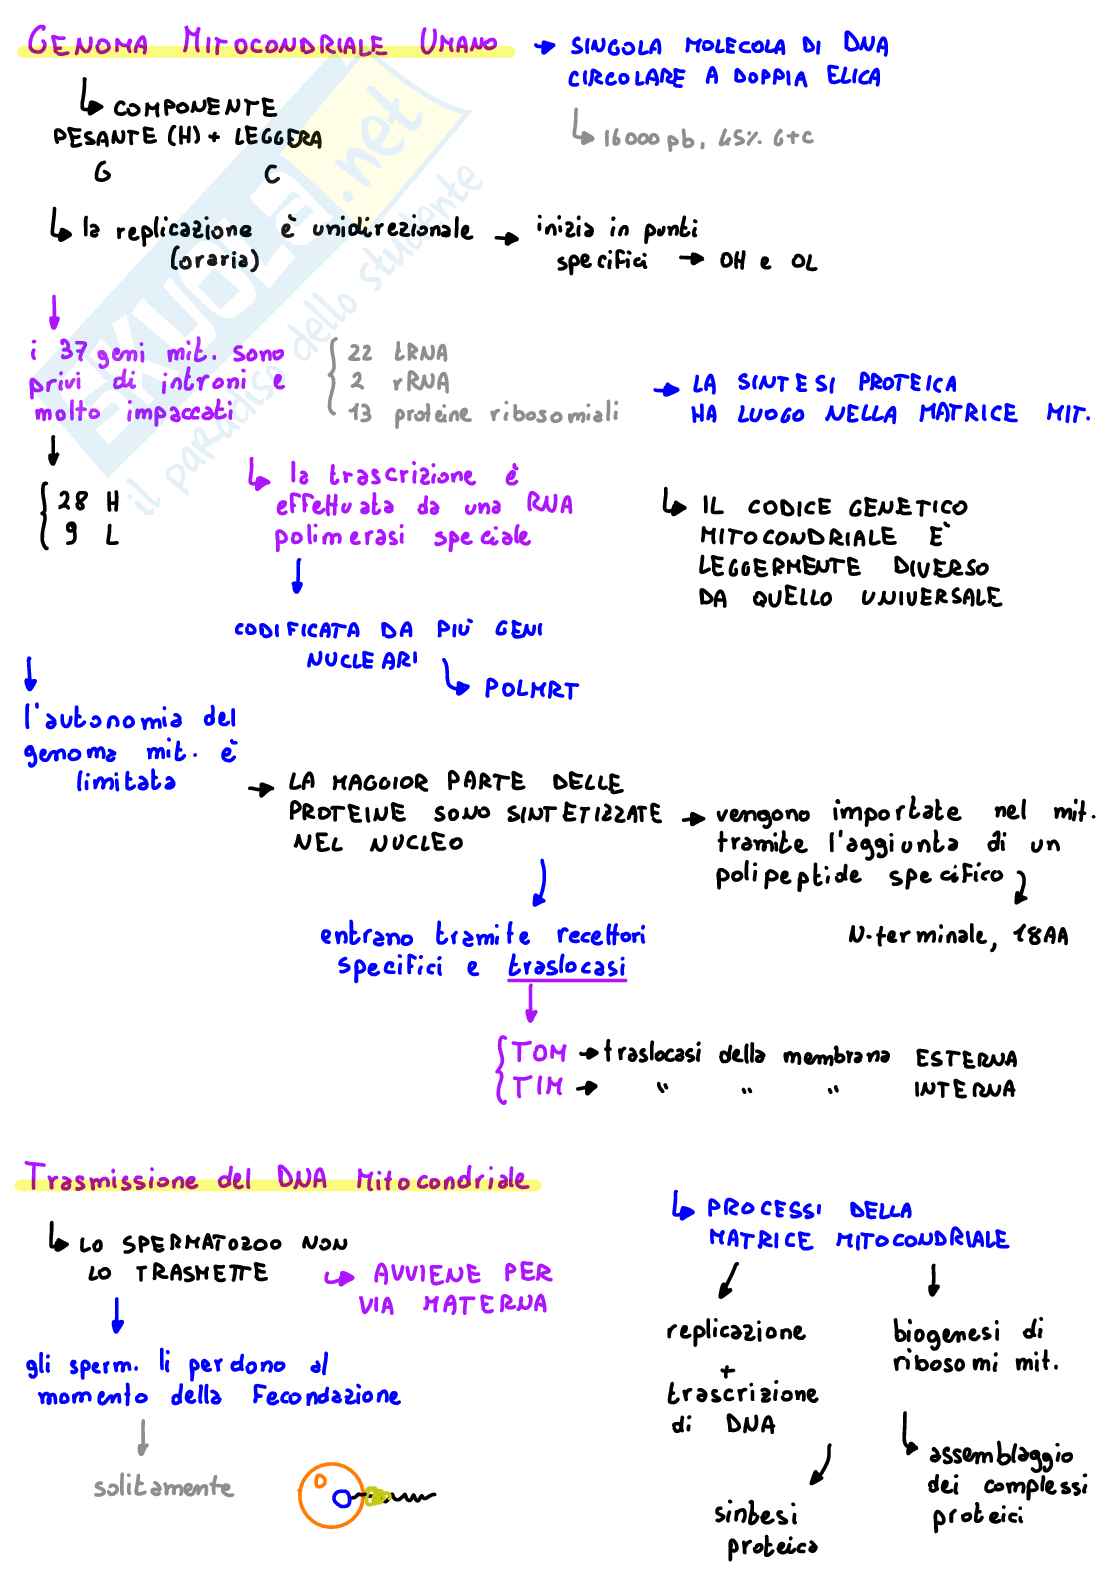 GENOMA MITOCONDRIALE UMANO → SINGOLA MOLECOLA DI DNA
CIRCOLARE A DOPPIA ELICA
↳ COMPONENTE
PESANTE (H) + LEGGERA
G C
↳ 16000 pb, 45% G+C
↳ la replicazione è unidirezionale → inizia in punti
(oraria) specifici → OH e OL
i 37 geni mit. sono
privi di introni e
molto impaccati
22 tRNA
2 rRNA
13 proteine ribosomiali
→ LA SINTESI PROTEICA
HA LUOGO NELLA MATRICE MIT.
28 H
9 L
↳ la trascrizione è
effettuata da una RNA
polimerasi speciale
↳ IL CODICE GENETICO
MITOCONDRIALE È
LEGGERMENTE DIVERSO
DA QUELLO UNIVERSALE
CODIFICATA DA PIÙ GENI
NUCLEARI
↳ POLMRT
l'autonomia del
genoma mit. è
limitata
→ LA MAGGIOR PARTE DELLE
PROTEINE SONO SINTETIZZATE
NEL NUCLEO
→ vengono importate nel mit.
tramite l'aggiunta di un
polipeptide specifico
N-terminale, 18AA
entrano tramite recettori
specifici e traslocasi
TOM → traslocasi della membrana ESTERNA
TIM → " " " INTERNA
Trasmissione del DNA Mitocondriale
↳ LO SPERMATOZOO NON
LO TRASMETTE
↳ AVVIENE PER
VIA MATERNA
gli sperm. li perdono al
momento della Fecondazione
solitamente
↳ PROCESSI DELLA
MATRICE MITOCONDRIALE
replicazione
+
trascrizione
di DNA
sintesi
proteica
biogenesi di
ribosomi mit.
↳ assemblaggio
dei complessi
proteici
SKUOLA.net
il paradiso dello studente